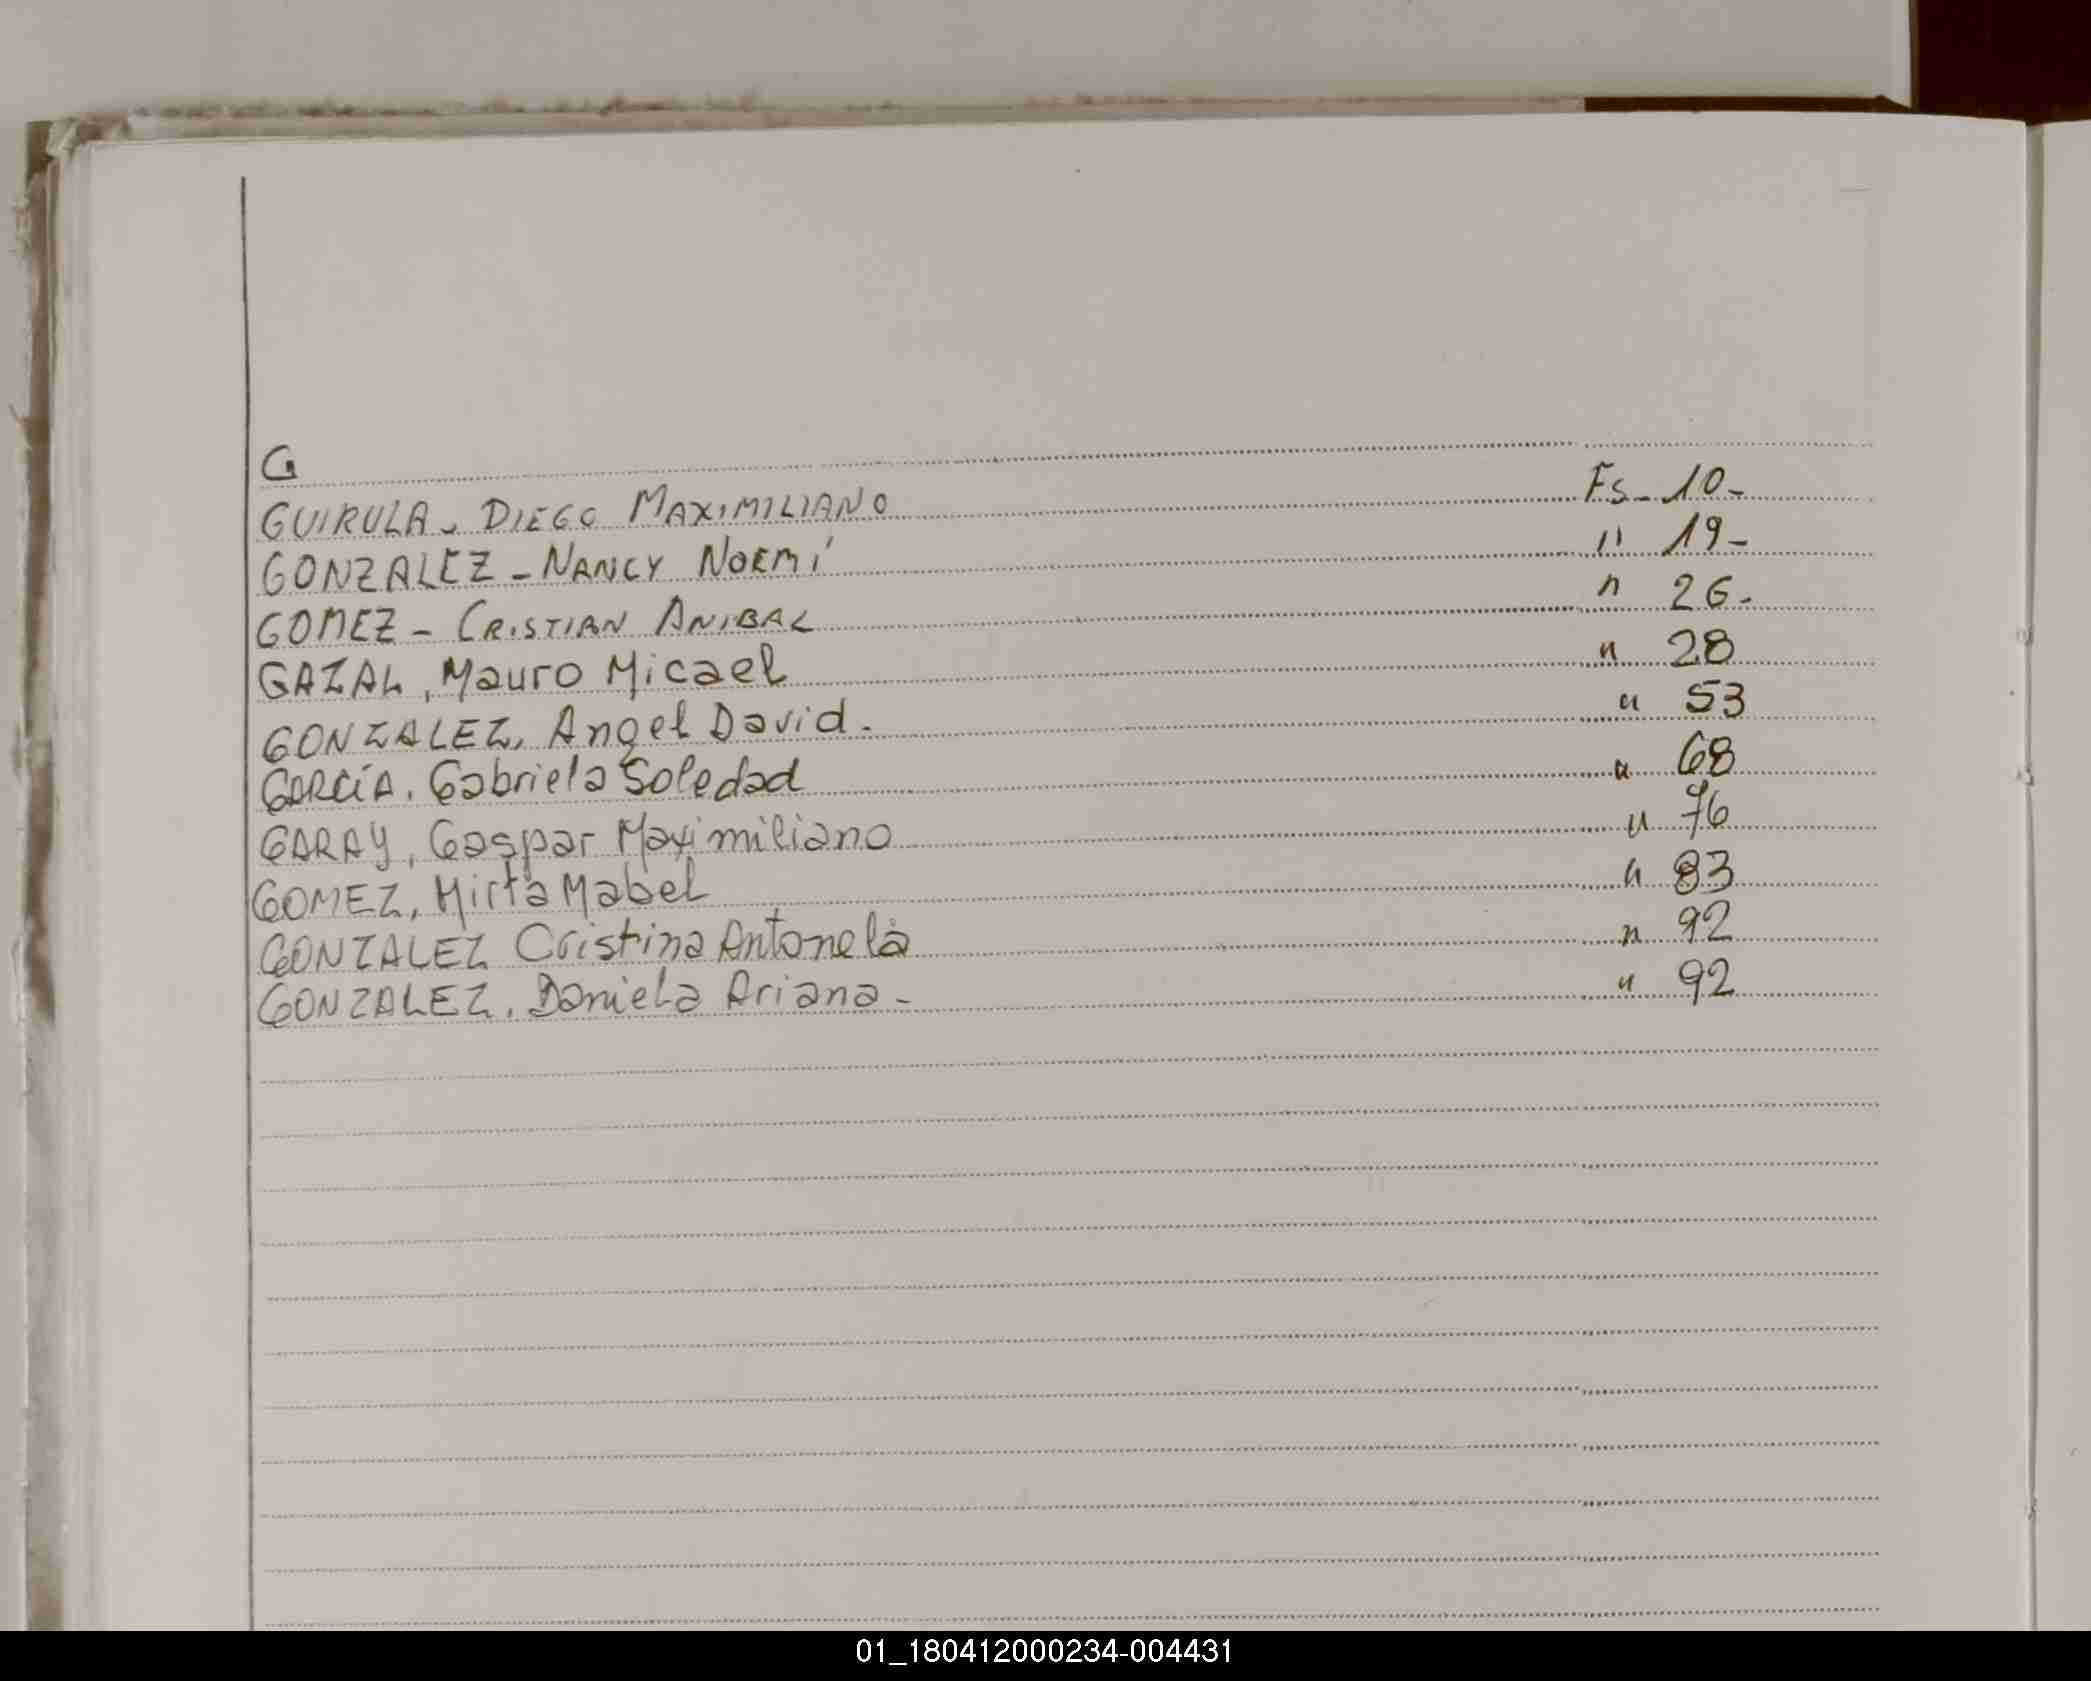 G
GUIRULA - DIEGO MAXIMILIANO Fs - 10 -
GONZALEZ - NANCY NOEMÍ " 19 -
GOMEZ - CRISTIAN ANIBAL " 26 -
GAZAL, Mauro Micael " 28
GONZALEZ, Angel David. " 53
GARCÍA, Gabriela Soledad " 68
GARAY, Gaspar Maximiliano " 76
GOMEZ, Mirta Mabel " 83
GONZALEZ Cristina Antonela " 92
GONZALEZ, Daniela Ariana - " 92
01_180412000234-004431